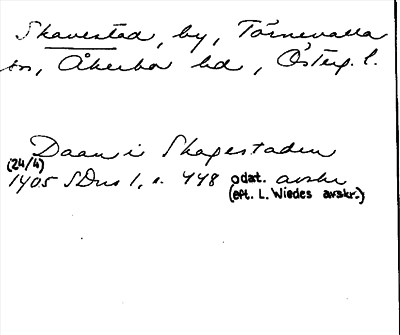 Skavestad, by, Törnevalla
sn, Åkerbo hd, Österg. l.
Daan i Skagestaden
(24/4)
1405 SDns 1, s. 448 odat. avskr
(eft. L. Wiedes avskr.)